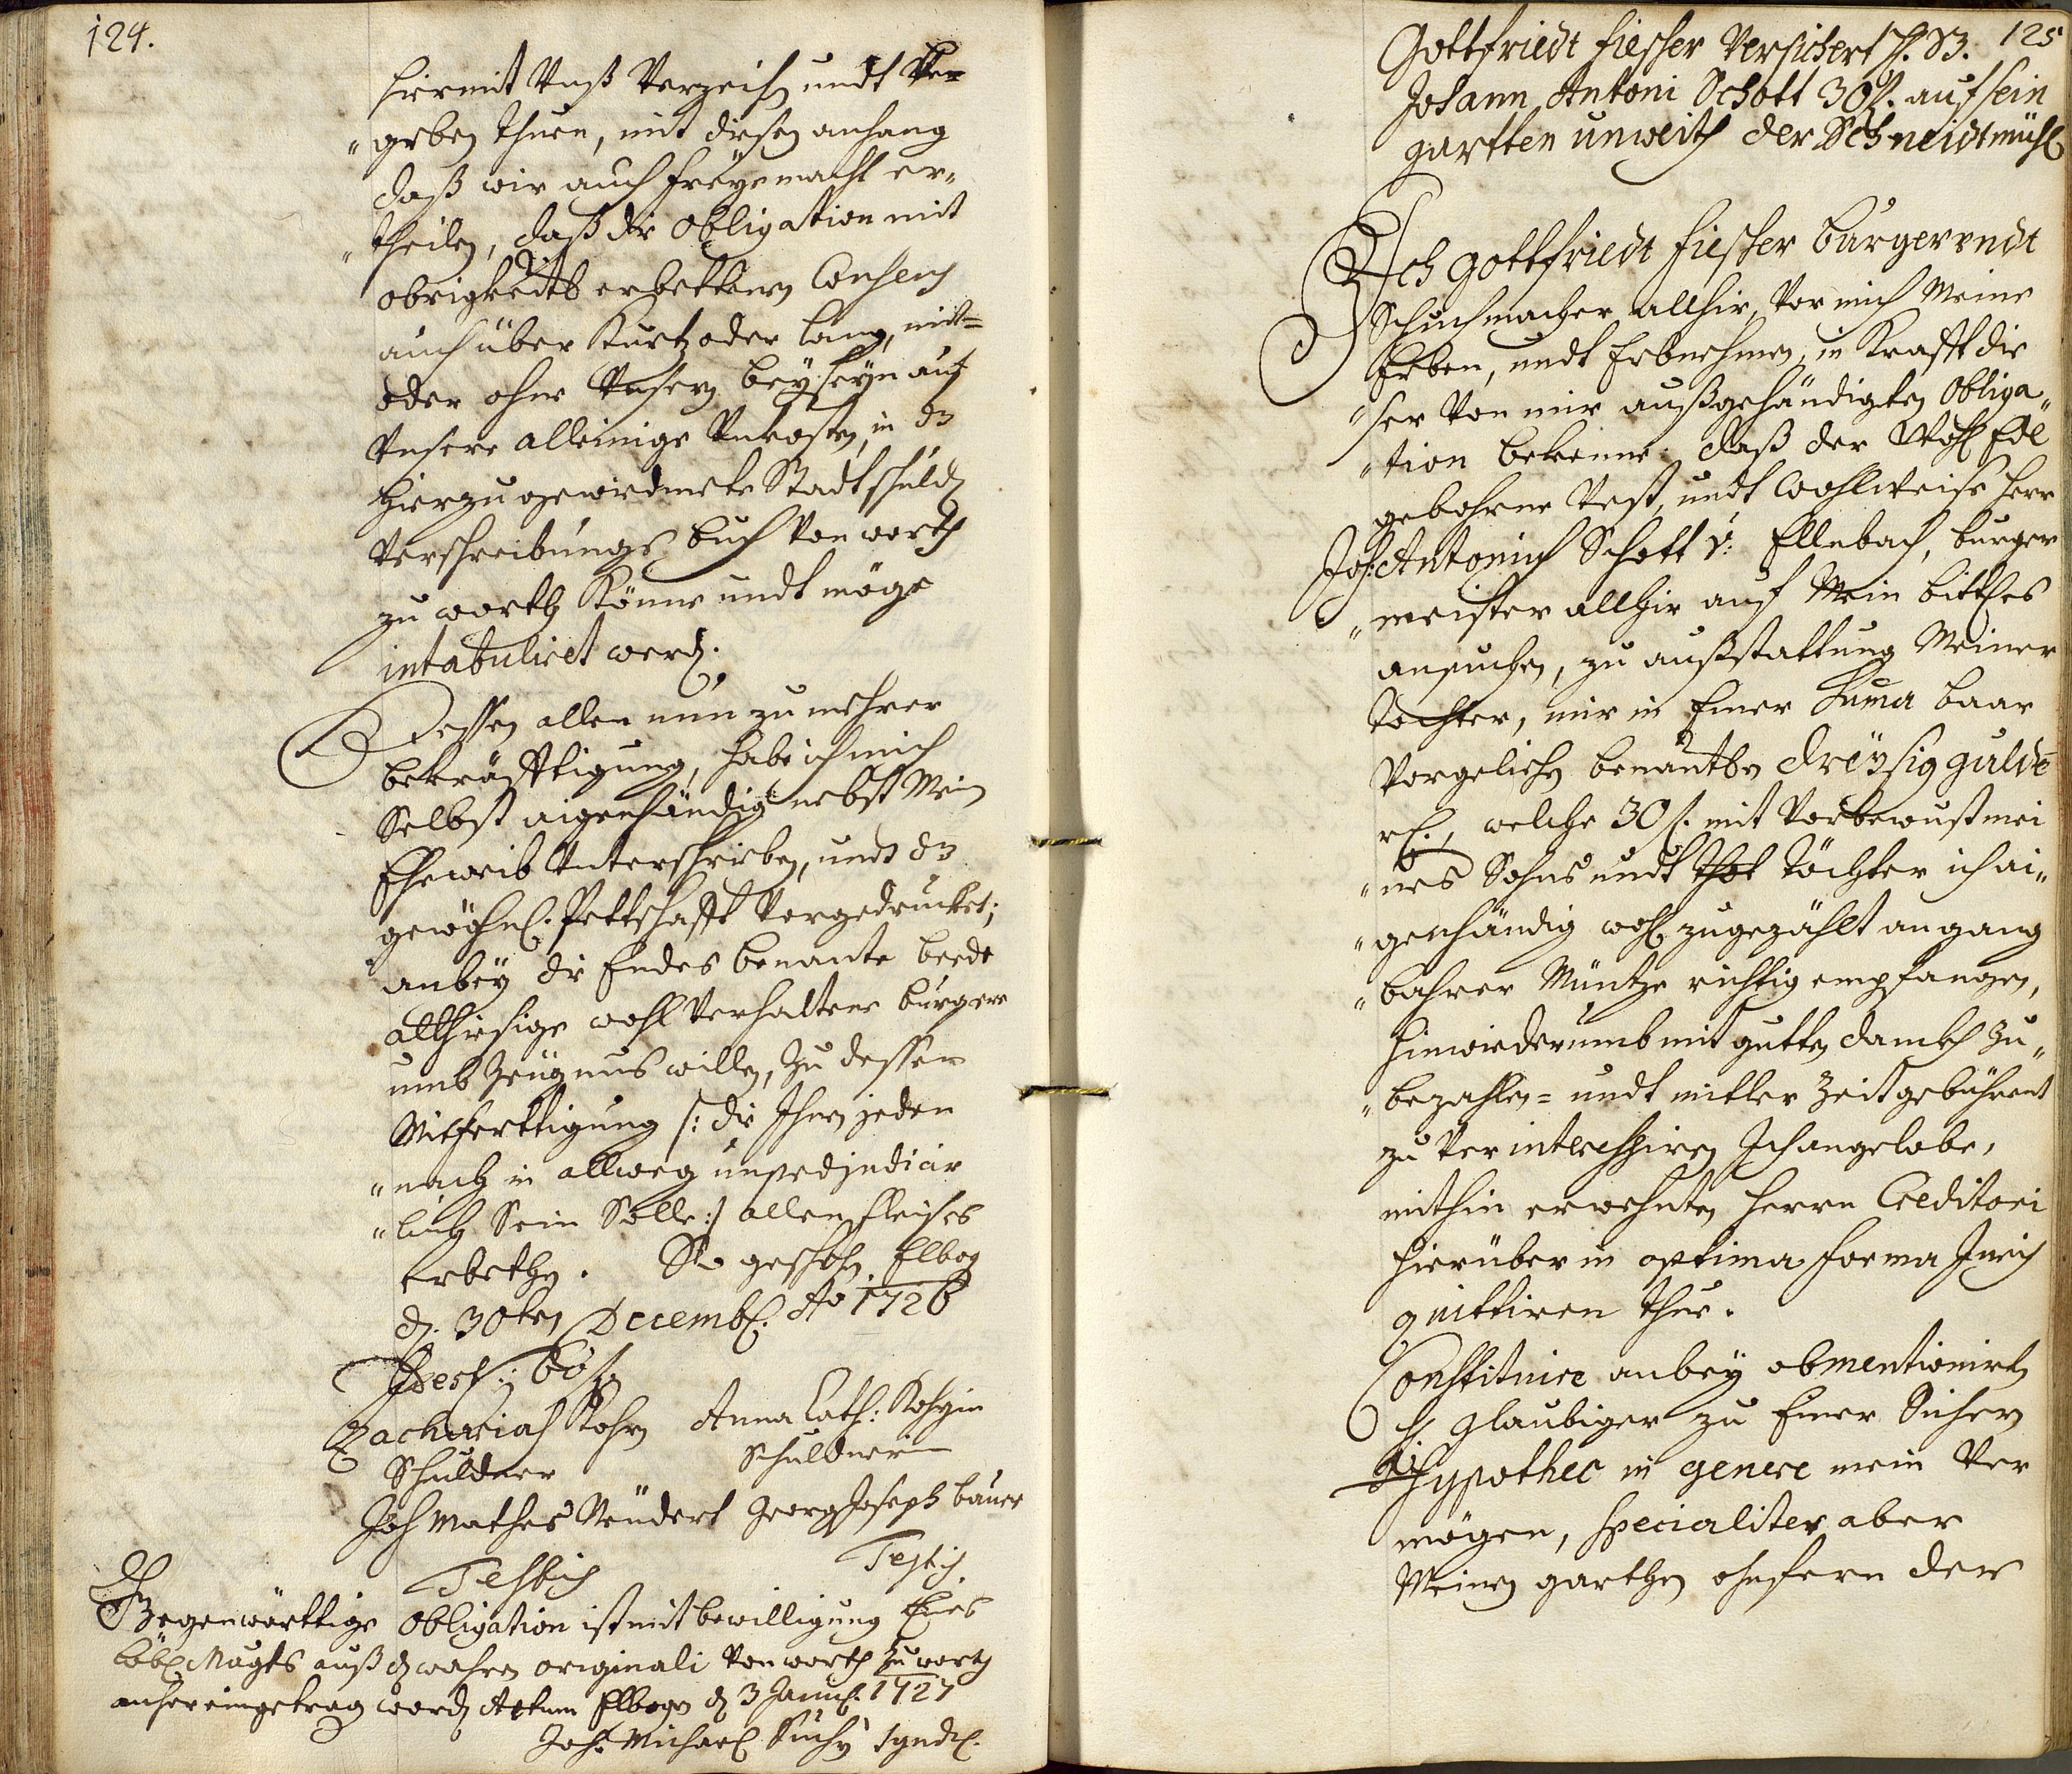 124.
hiermit Vnß Verzeich undt Ve=
"geben thuen, mit diesen anhang
daß wir auch freye macht er"
"theilen, daß die Obligation mit
obrigkeits erbettenen Consens
auch über Kurtz oder lang, mit=
oder ohne Vnsern beyseyn auf
Vnsere alleinige Vnkosten, in dz
hierzu gewidmete Stadt schuld
Verschreibungs buch Von worth
zu worth könne undt möge
intabuliret werd.
Dessen allen nun zu mehrer
bekräfftigung, habe ich mich
Selbst aigenhändig nebst Mein
Eheweib Unterschrieben, undt dz
gewöhnl. Pettschafft Vorgedrucket;
anbey die Endes benante beede
allhiesige wohl Verhaltene bürgere
umb Zeugnus willen, zu dessen
Mitferttigung /: die Ihnen jeden
"nach in allweg unpraejudicir
"lich Sein Solle :/ allen fleises
Erbethen. So geschehen Elbog
d. 30ten Decemb. Ao 1726
Zacharias Kohn Anna Cath: Kohnin
Schuldner Schuldnerin
Joh Mathes Neudert Georg Joseph bauer
Testis Testis.
Gegenwärttige Obligation ist mit bewilligung Eines
löbl Magts auß d wahren originali Von worth zu worth
anhero eingetrag word Actum Elbogen d 3 Janu. 1727
Joh. Michael Suchy Synd.
Gottfriedt Fiescher Versichert H. B. 125
Johann Antoni Schott 30 f. auf sein
gartten unweith der Schneidtmühl
Ich Gottfriedt Fiescher burger undt
Schuchmacher allhir, Vor mich Meine
Erben, undt Erbnehmen, in Krafft die
"ser Von mir außgehändigten Obliga"
"tion bekenne, daß der Wohl Edl
gebohrne Vest, undt Wohlweise Herr
Joh: Antonius Schott V: Ellnbach, burger
"meister allhir auf Mein bittes
ansuchen, zu außstattung Meiner
Tochter, mir in Einer Suma baar
Vorgeliehen benantben dreysig guldē
rh., welche 30 f. mit Vorbewust mei
"nes Sohns undt Töchter ich ai"
"genhändig wohl zugezählt an gang
"bahrer Müntze richtig empfangen,
hinwiederumb mit gutten danck zu"
"bezahlen = undt mitler Zeit gebührent
zu Verinteressiren Ich angelobe,
mithin erwehnten Herrn Creditori
hierüber in optima forma Juris
quittiren thue.
Constituire anbey obmentionirten
H glaubiger zu Einer Sichern
Hypothec in genere mein Ver
mögen, specialiter aber
Meinen garthen ohnfern der